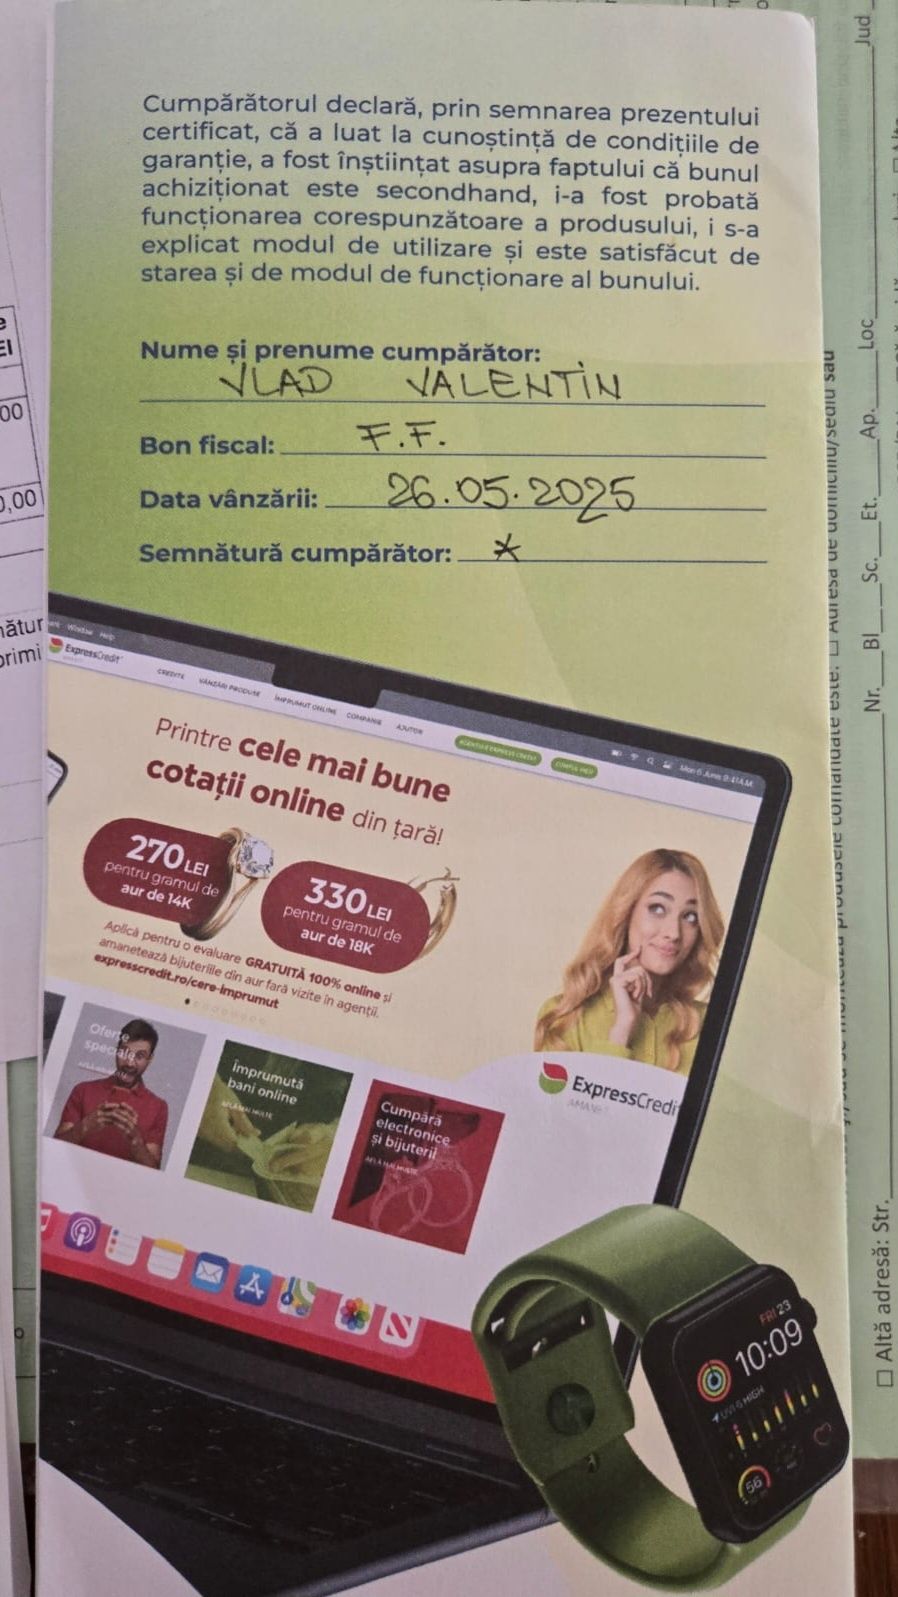 Cumpărătorul declară, prin semnarea prezentului
certificat, că a luat la cunoștință de condițiile de
garanție, a fost înștiințat asupra faptului că bunul
achiziționat este secondhand, i-a fost probată
funcționarea corespunzătoare a produsului, i s-a
explicat modul de utilizare și este satisfăcut de
starea și de modul de funcționare al bunului.
Nume și prenume cumpărător:
VLAD VALENTIN
Bon fiscal: F.F.
Data vânzării: 26.05.2025
Semnătură cumpărător: *
Window Help
Mon 6 June 9:41 AM
ExpressCredit
CREDITE VÂNZĂRI PRODUSE ÎMPRUMUT ONLINE COMPANIE AJUTOR
Printre cele mai bune
cotații online din țară!
270 LEI
pentru gramul de
aur de 14K
330 LEI
pentru gramul de
aur de 18K
Aplică pentru o evaluare GRATUITĂ 100% online și
amanetează bijuteriile din aur fară vizite în agenții.
expresscredit.ro/cere-imprumut
Oferte
speciale
Împrumută
bani online
AFLĂ MAI MULTE
Cumpără
electronice
și bijuterii
AFLĂ MAI MULTE
ExpressCredi
AMANET
FRI 23
10:09
UVI 6 HIGH
56
00
0,00
nătur
primi
Adresa de domiciliu/sediu sau
produsele comandate este:
Nr. Bl Sc. Et. Ap. Loc Jud
□ Altă adresă: Str.